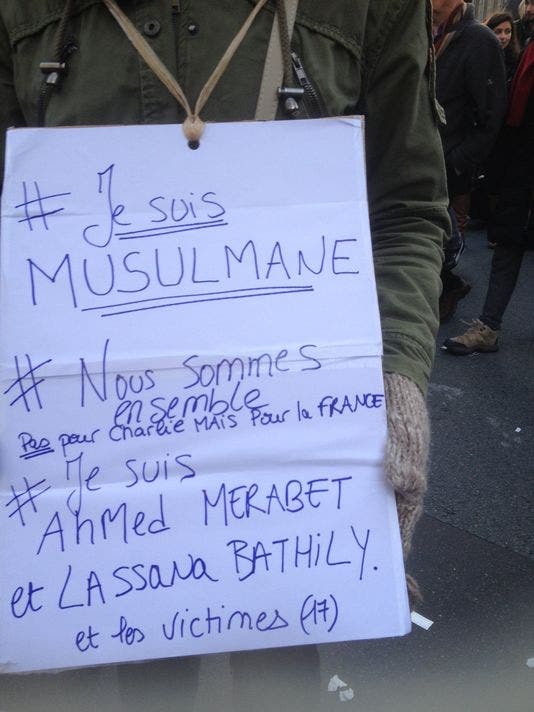 # Je suis
MUSULMANE
# Nous sommes
ensemble
Pas pour Charlie MAIS Pour la FRANCE
# Je suis
Ahmed MERABET
et LASSANA BATHILY.
et les victimes (17)